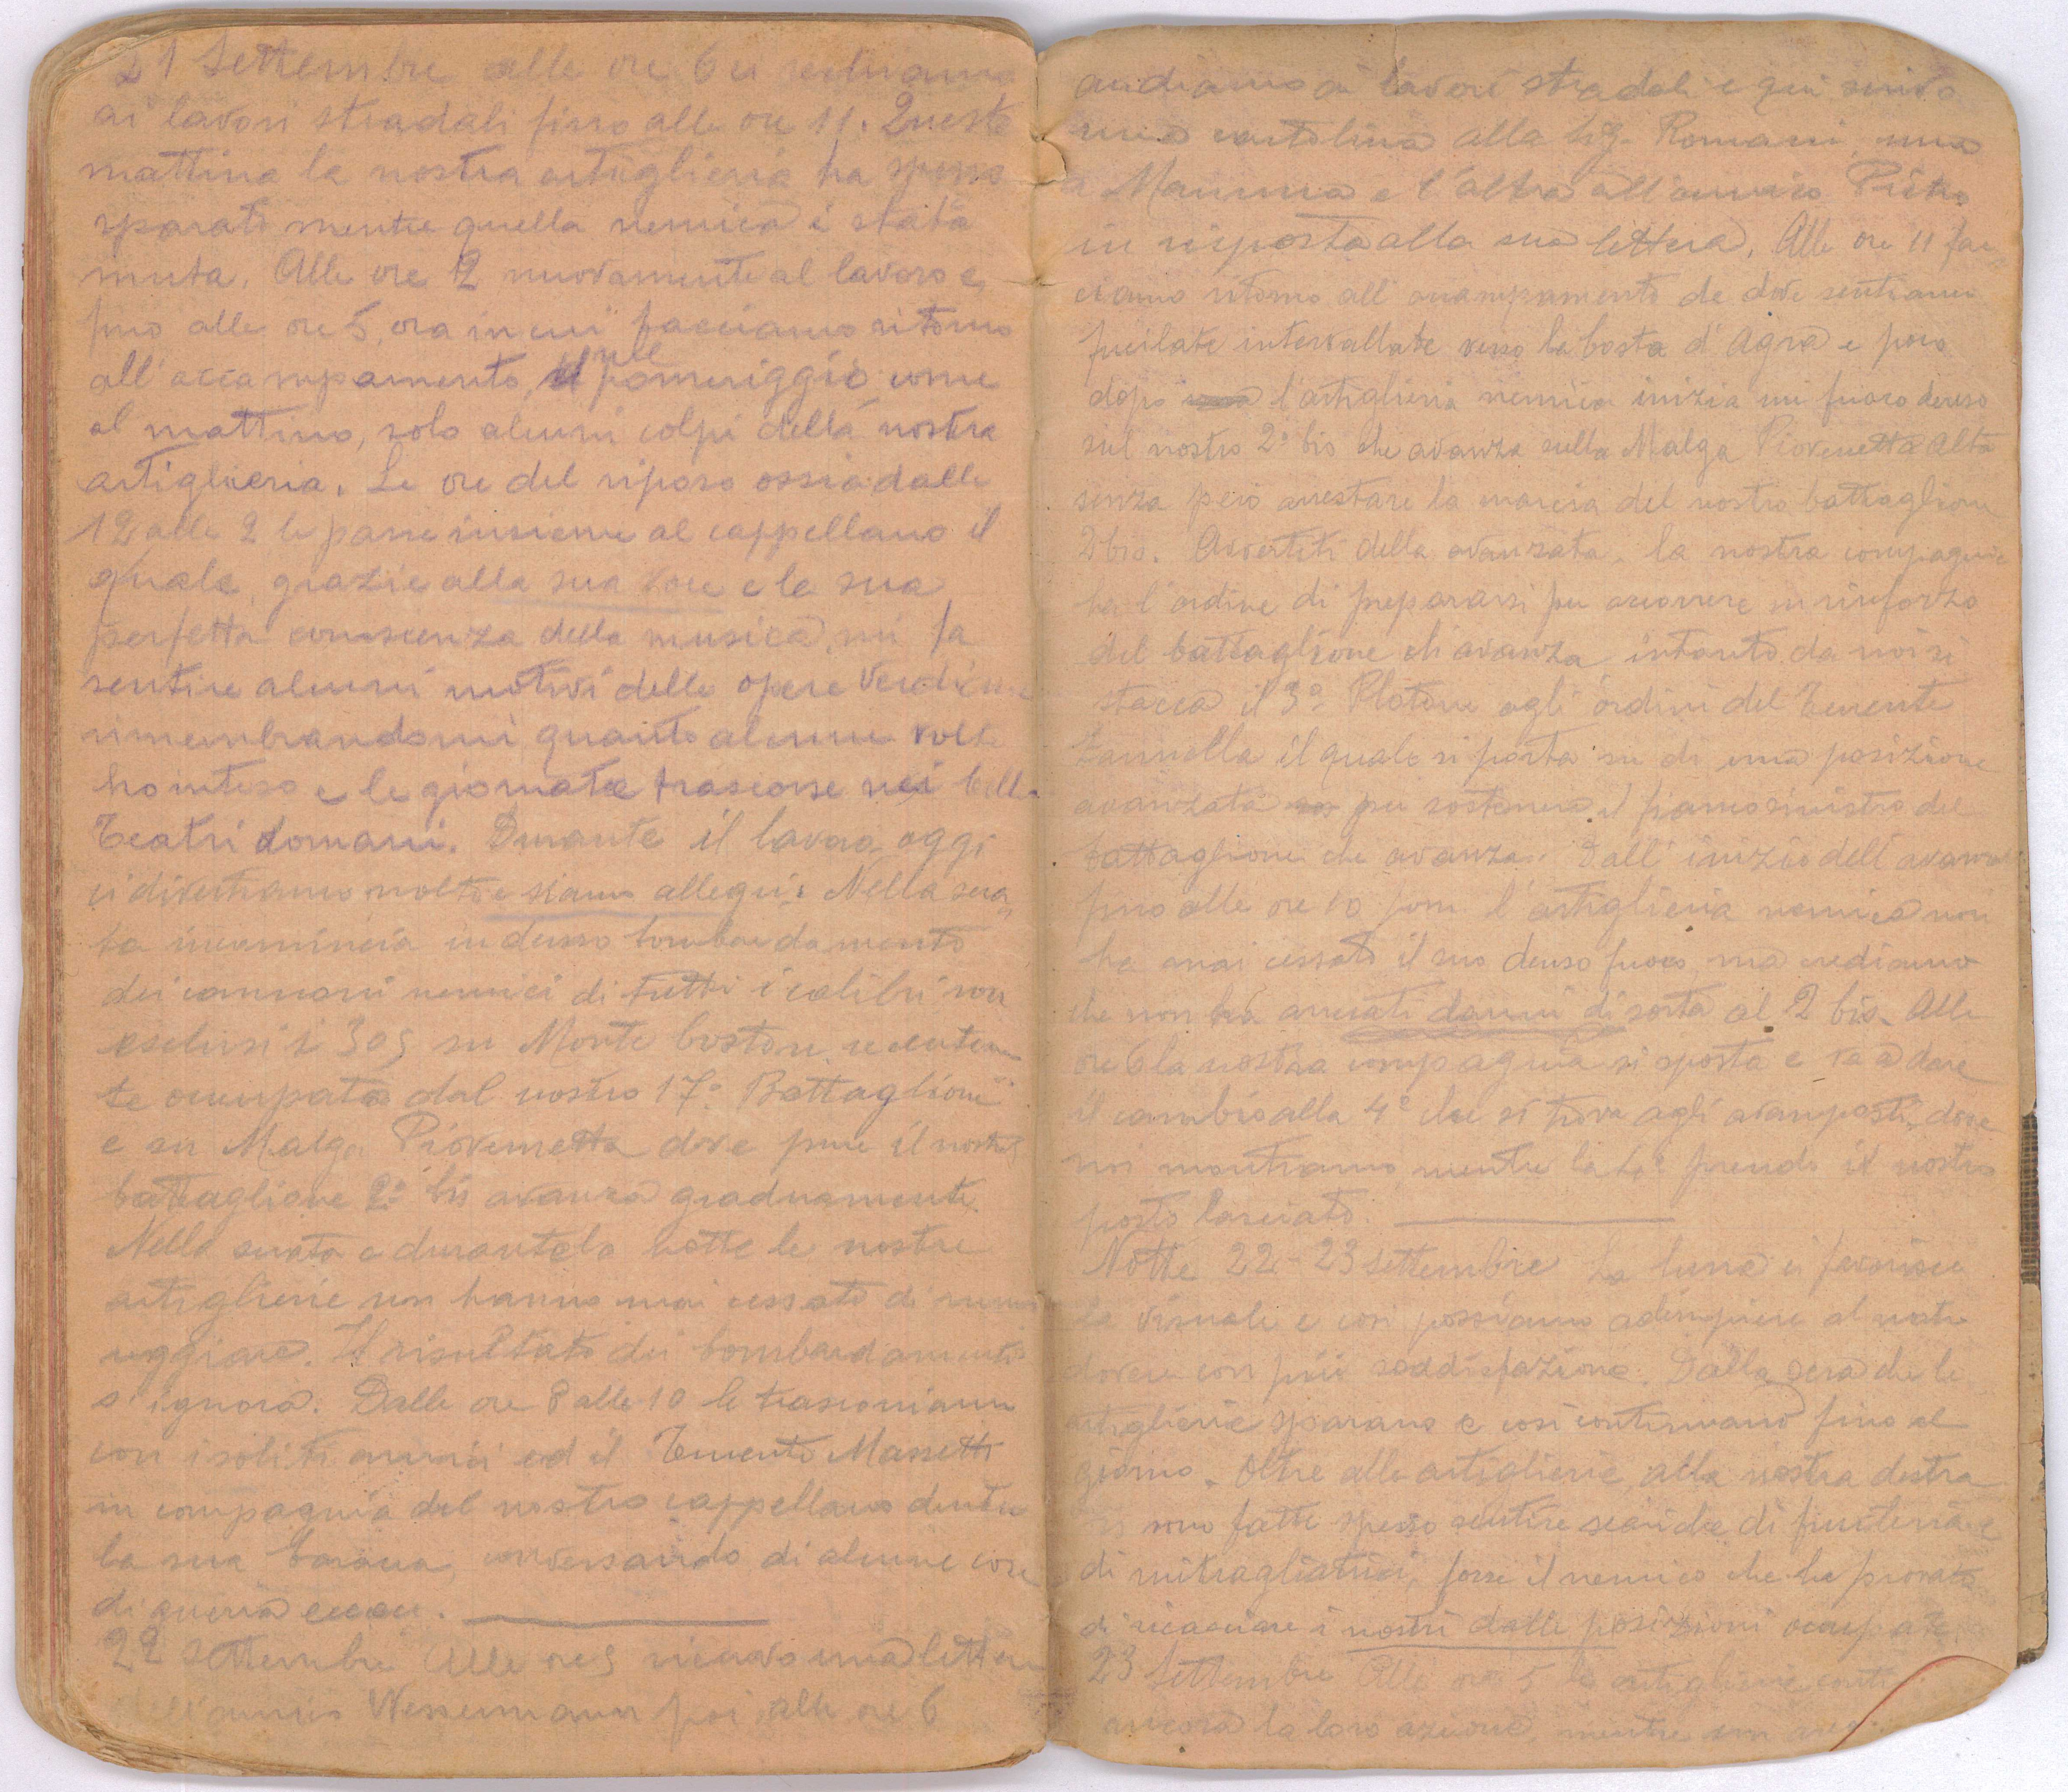 21 Settembre alle ore 6 ci rechiamo
ai lavori stradali fino alle ore 11. Questa
mattina la nostra artiglieria ha spesso
sparato mentre quella nemica è stata
muta. Alle ore 2 nuovamente al lavoro e
fino alle ore 5, ora in cui facciamo ritorno
all'accampamento, nel pomeriggio come
al mattino, solo alcuni colpi della nostra
artiglieria. Le ore del riposo ossia dalle
12 alle 2 le passo insieme al cappellano il
quale, grazie alla sua voce e la sua
perfetta conoscenza della musica, mi fa
sentire alcuni motivi delle opere Verdiane
rimembrandomi quanto alcune volte
ho inteso e le giornate trascorse nei belli
Teatri domani. Durante il lavoro oggi
ci divertiamo molto e siamo allegri. Nella sera
ta incomincia un denso bombardamento
dei cannoni nemici di tutti i calibri non
esclusi i 305 su Monte Coston recentemen
te occupato dal nostro 17° Battaglione
e su Malga Piovernetta dove pure il nostro
battaglione 2° bis avanza gradatamente.
Nella serata e durante la notte le nostre
artiglierie non hanno mai cessato di rumo
reggiare. Il risultato dei bombardamenti
s'ignora. Dalle ore 8 alle 10 le trascorriamo
con i soliti amici ed il Tenente Massetti
in compagnia del nostro cappellano dentro
la sua baracca, conversando di alcune cose
di guerra ecc ecc.
22 Settembre Alle ore 5 ricevo una lettera
dell'amico Wessermann poi alle ore 6
andiamo ai lavori stradali e qui scrivo
una cartolina alla Sig. Romani, una
a Mamma e l'altra all'amico Pietro
in risposta alla sua lettera. Alle ore 11 fac
ciamo ritorno all'accampamento da dove sentiamo
fucilate intervallate verso la Costa d'Agra e poco
dopo l'artiglieria nemica inizia un fuoco denso
sul nostro 2° bis che avanza sulla Malga Piovernetta Alta
senza però arrestare la marcia del nostro battaglione
2 bis. Avvertiti della avanzata, la nostra compagnia
ha l'ordine di prepararsi per accorrere in rinforzo
del battaglione che avanza, intanto da noi si
stacca il 3° Plotone agli ordini del Tenente
Zannella il quale si porta su di una posizione
avanzata per sostenere il fianco sinistro del
battaglione che avanza. Dall'inizio dell'avanzata
fino alle ore 10 pom l'artiglieria nemica non
ha mai cessato il suo denso fuoco, ma crediamo
che non ha arrecati danni di sorta al 2 bis. Alle
ore 6 la nostra compagnia si sposta e va a dare
il cambio alla 4° che si trova agli avamposti, dove
noi montiamo, mentre la 4° prende il nostro
posto lasciato.
Notte 22-23 settembre La luna ci favorisce
la visuale e così possiamo adempiere al nostro
dovere con più soddisfazione. Dalla sera che le
artiglierie sparano e così continuano fino al
giorno. Oltre alle artiglierie, alla nostra destra
si sono fatte spesso sentire scariche di fucileria e
di mitragliatrici, forse il nemico che ha provato
di ricacciare i nostri dalle posizioni occupate.
23 Settembre Alle ore 5 le artiglierie
ancora la loro azione, mentre un